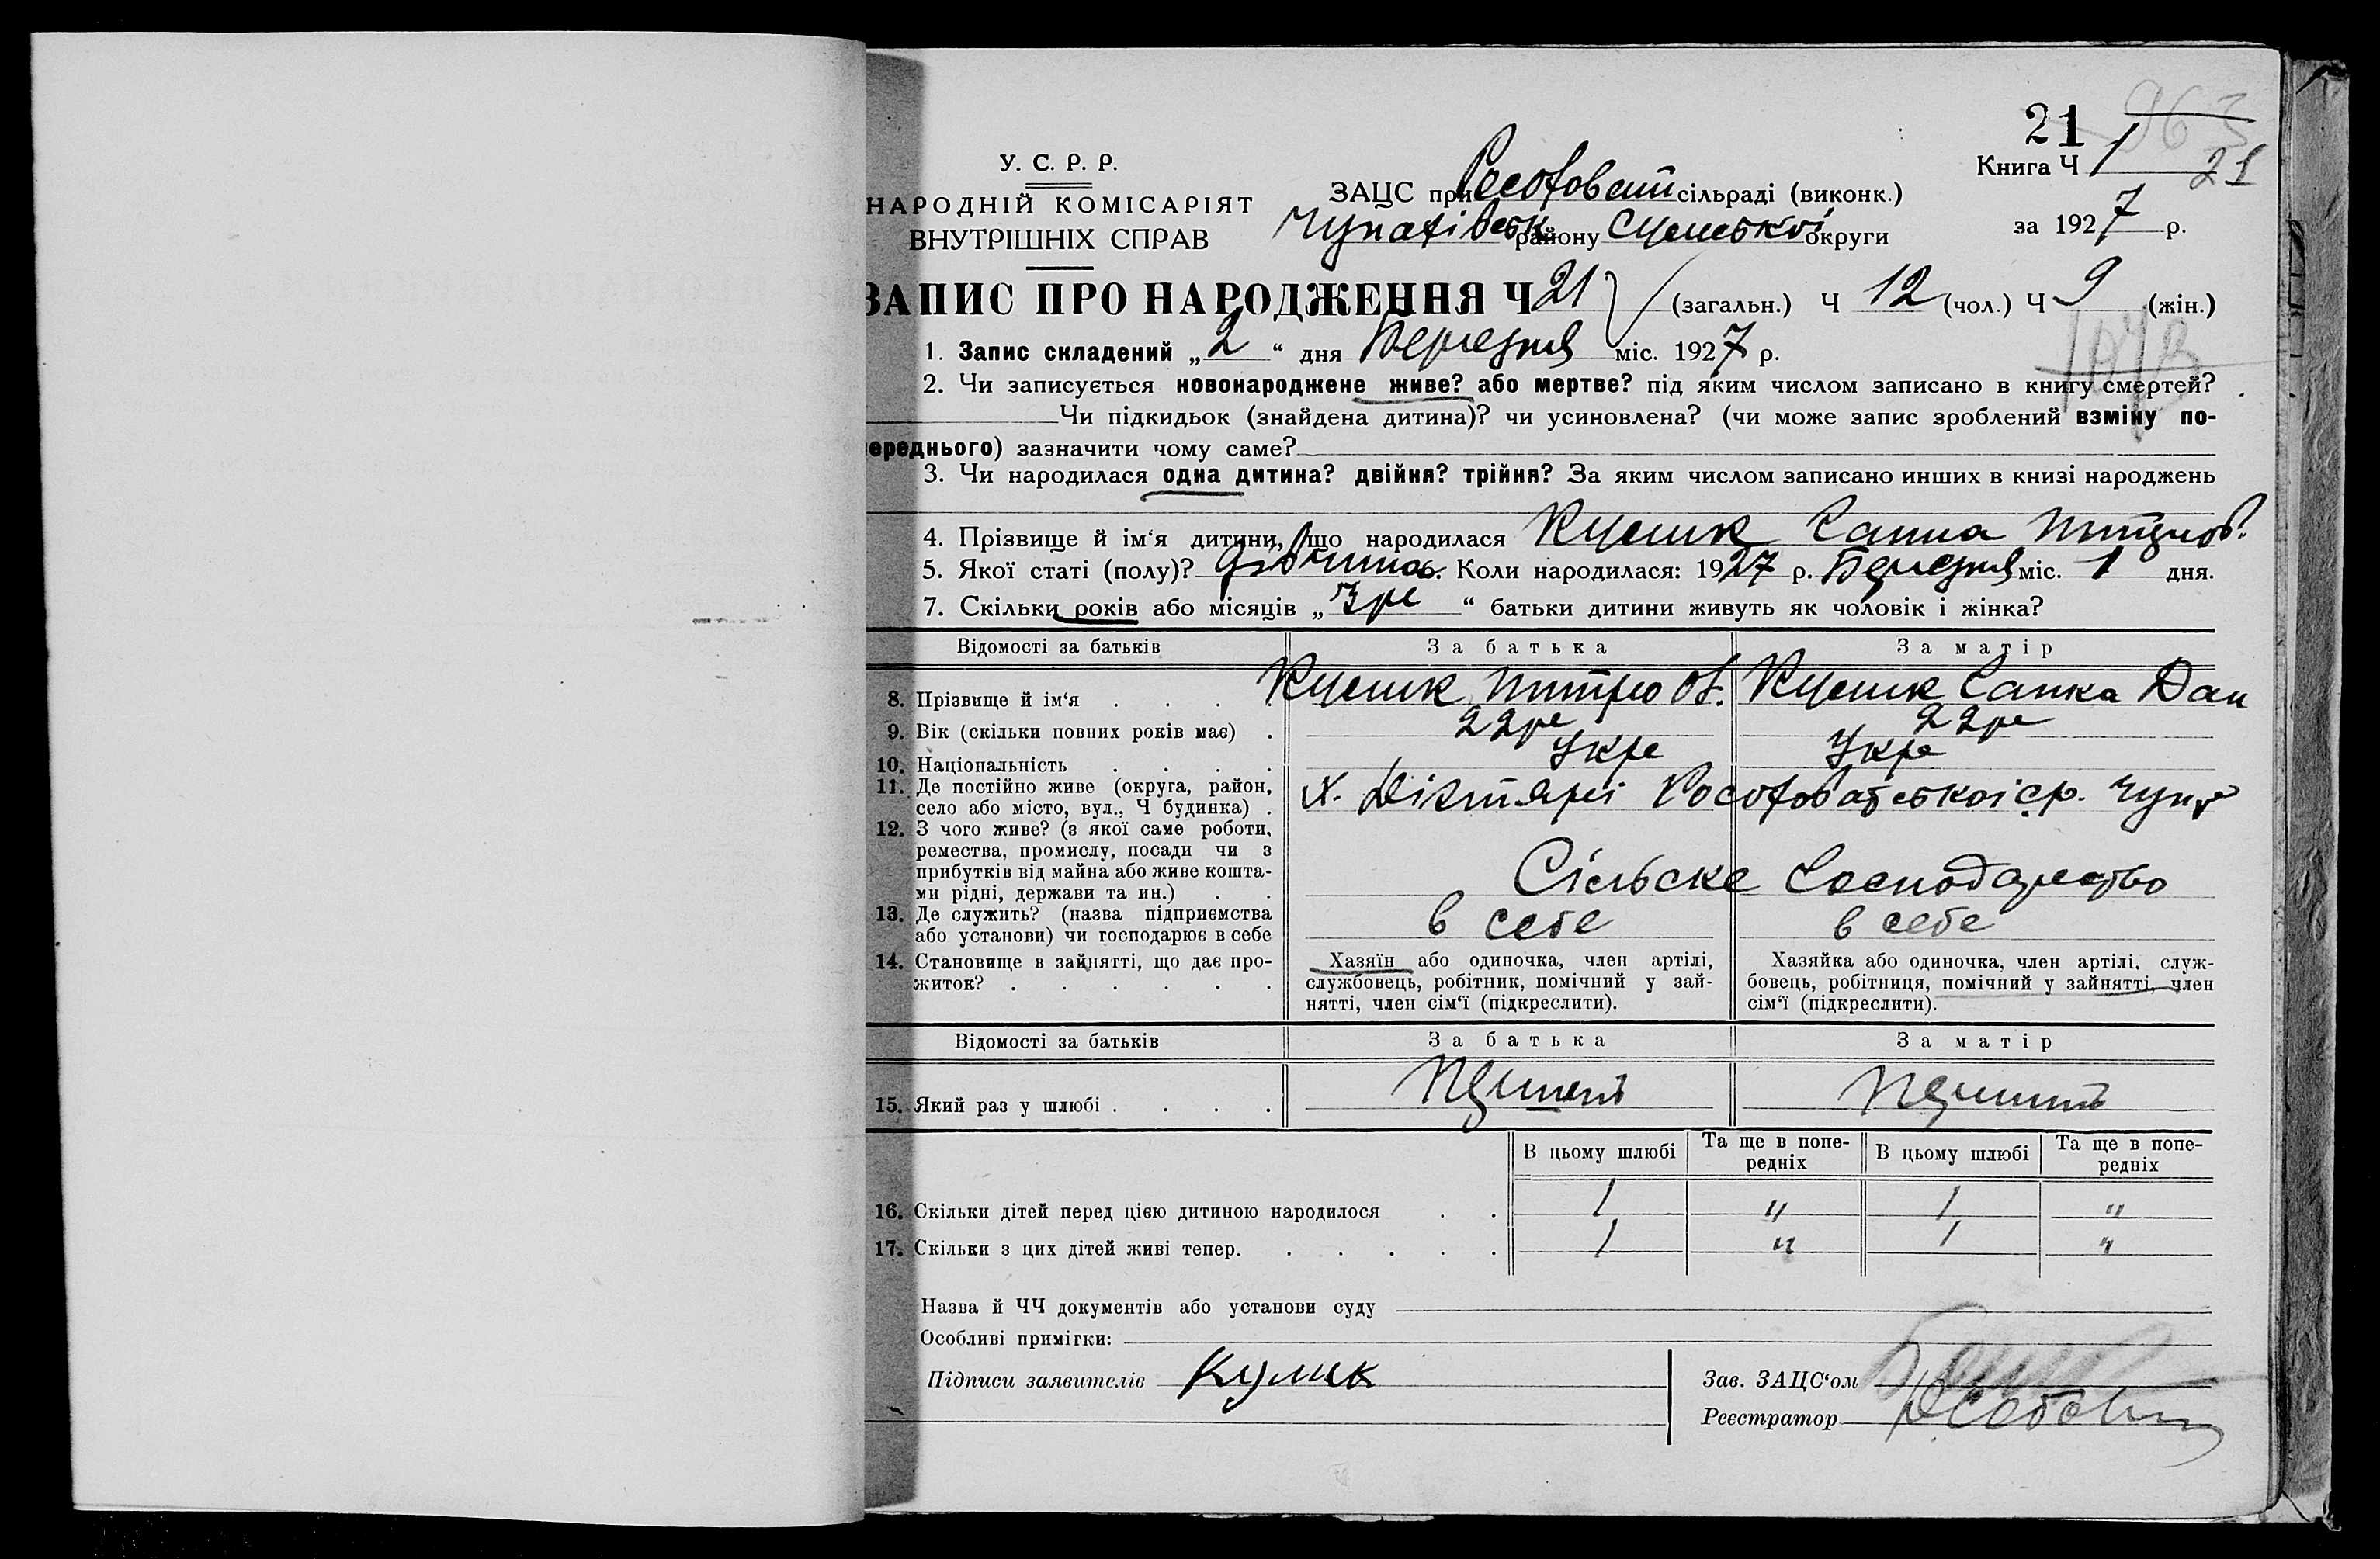 21
У. С. Р. Р.
Книга Ч 1 21
НАРОДНІЙ КОМІСАРІЯТ
ВНУТРІШНІХ СПРАВ
ЗАЦС при Росоховат сільраді (виконк.)
Чупахівськ району Сумської округи
за 1927 р.
ЗАПИС ПРО НАРОДЖЕННЯ Ч 21 (загальн.) Ч 12 (чол.) Ч 9 (жін.)
1. Запис складений „2“ дня Березня міс. 1927 р.
2. Чи записується новонароджене живе? або мертве? під яким числом записано в книгу смертей?
Чи підкидьок (знайдена дитина)? чи усиновлена? (чи може запис зроблений взміну по-
ереднього) зазначити чому саме?
3. Чи народилася одна дитина? двійня? трійня? За яким числом записано инших в книзі народжень
4. Прізвище й ім‘я дитини, що народилася Кулик Ганна
5. Якої статі (полу)? Коли народилася: 1927 р. Березня міс. 1 дня.
7. Скільки років або місяців „3 ре“ батьки дитини живуть як чоловік і жінка?
Відомості за батьків За батька За матір
8. Прізвище й ім‘я . . . . Кулик Кулик Ганка Дан
9. Вік (скільки повних років має) . 22 ре 22 ре
10. Національність . . . . Укре Укре
11. Де постійно живе (округа, район,
село або місто, вул., Ч будинка) . х. Дігтярі Росоховатської с.р.
12. З чого живе? (з якої саме роботи,
ремества, промислу, посади чи з
прибутків від майна або живе кошта-
ми рідні, держави та ин.) . . Сільське Господарство
13. Де служить? (назва підприємства
або установи) чи господарює в себе в себе в себе
14. Становище в зайнятті, що дає про-
житок? . . . . . .
Хазяїн або одиночка, член артілі,
службовець, робітник, помічний у зай-
нятті, член сім‘ї (підкреслити).
Хазяйка або одиночка, член артілі, служ-
бовець, робітниця, помічний у зайнятті, член
сім‘ї (підкреслити).
Відомості за батьків За батька За матір
15. Який раз у шлюбі . . . .
В цьому шлюбі Та ще в попе-
редніх В цьому шлюбі Та ще в попе-
редніх
16. Скільки дітей перед цією дитиною народилося . . 1 " 1 "
17. Скільки з цих дітей живі тепер. . . . . . 1 " 1 "
Назва й ЧЧ документів або установи суду
Особливі примітки:
Підписи заявителів Кулик
Зав. ЗАЦС‘ом
Реєстратор